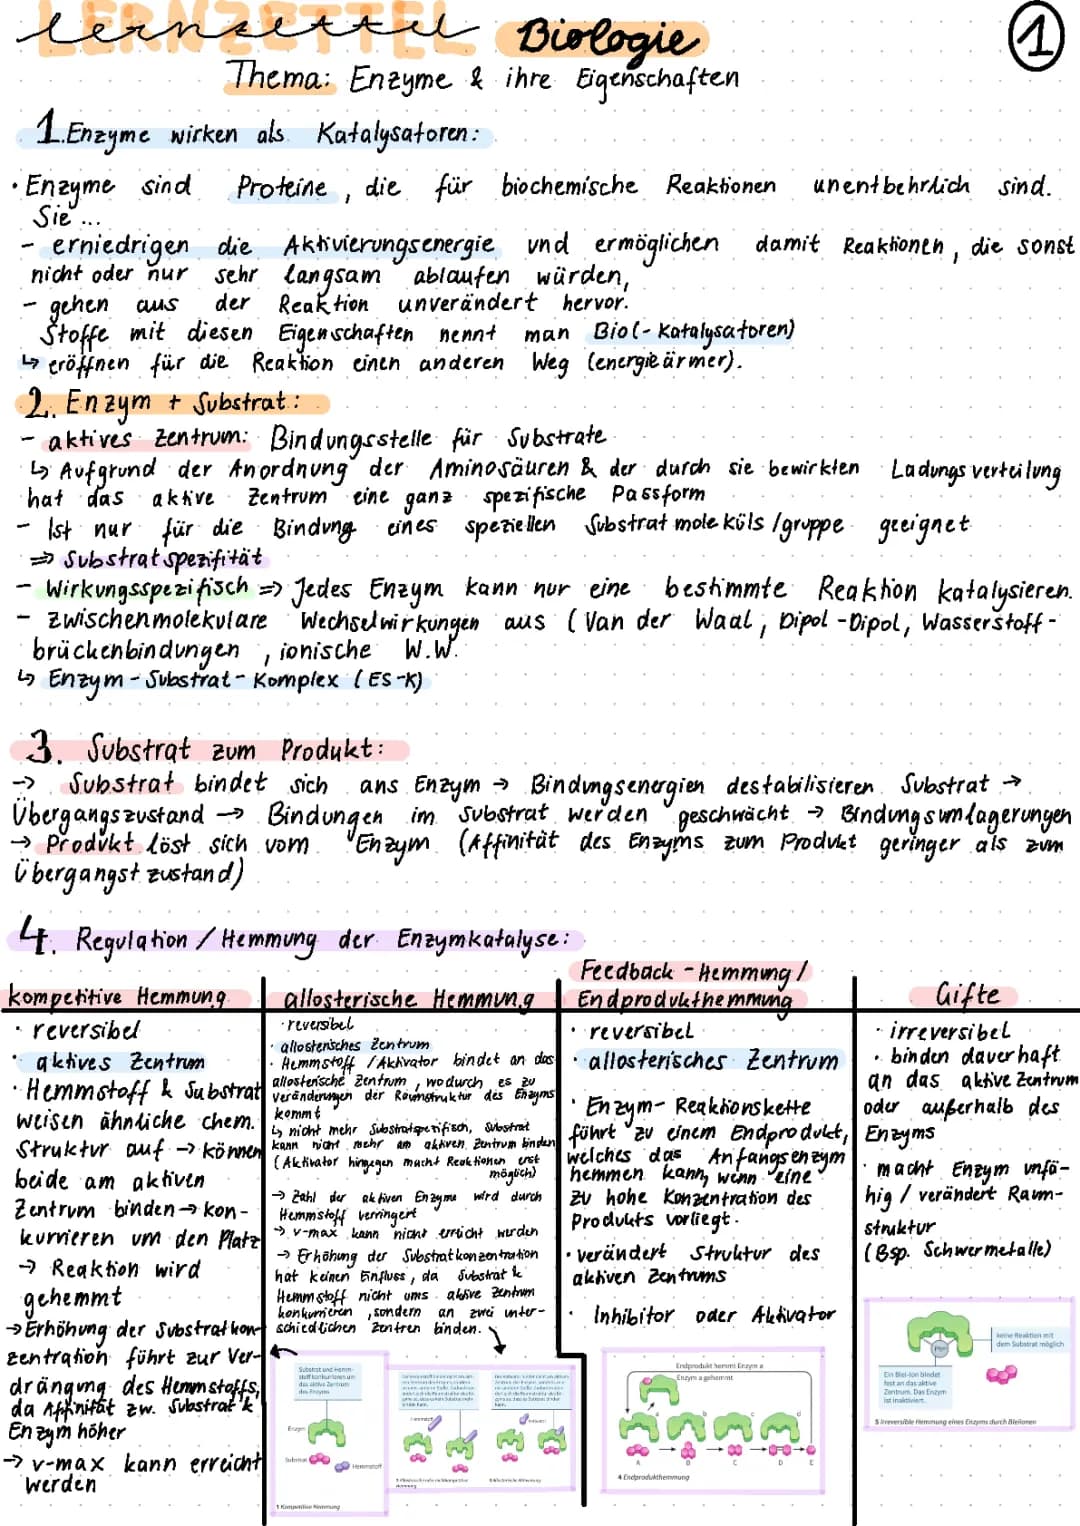 LERNZETTEL
lernzettel Biologie
1
Thema: Enzyme & ihre Eigenschaften
1. Enzyme wirken als Katalysatoren:
• Enzyme sind Proteine, die für biochemische Reaktionen unentbehrlich sind.
Sie ...
- erniedrigen die Aktivierungsenergie und ermöglichen damit Reaktionen, die sonst
nicht oder nur sehr langsam ablaufen würden,
- gehen aus der Reaktion unverändert hervor.
Stoffe mit diesen Eigenschaften nennt man Bio(-Katalysatoren)
↳ eröffnen für die Reaktion einen anderen Weg (energieärmer).
2. Enzym + Substrat:
- aktives Zentrum: Bindungsstelle für Substrate
↳ Aufgrund der Anordnung der Aminosäuren & der durch sie bewirkten Ladungsverteilung
hat das aktive Zentrum eine ganz spezifische Passform
- Ist nur für die Bindung eines speziellen Substratmoleküls/gruppe geeignet
=> Substratspezifität
- Wirkungsspezifisch => Jedes Enzym kann nur eine bestimmte Reaktion katalysieren.
- zwischenmolekulare Wechselwirkungen aus (Van der Waal, Dipol-Dipol, Wasserstoff-
brückenbindungen, ionische W.W.
↳ Enzym-Substrat-Komplex (ES-K)
3. Substrat zum Produkt:
-> Substrat bindet sich ans Enzym → Bindungsenergien destabilisieren Substrat →
Übergangszustand → Bindungen im Substrat werden geschwächt → Bindungsumlagerungen
→ Produkt löst sich vom Enzym (Affinität des Enzyms zum Produkt geringer als zum
Übergangstzustand)
4. Regulation/Hemmung der Enzymkatalyse:
kompetitive Hemmung
• reversibel
• aktives Zentrum
• Hemmstoff & Substrat
weisen ähnliche chem.
Struktur auf → können
beide am aktiven
Zentrum binden → kon-
kurrieren um den Platz
→ Reaktion wird
gehemmt
→ Erhöhung der Substratkon-
zentration führt zur Ver-
drängung des Hemmstoffs,
da Affinität zw. Substrat &
Enzym höher
→ v-max kann erreicht
werden
allosterische Hemmung
• reversibel
• allosterisches Zentrum
• Hemmstoff/Aktivator bindet an das
allosterische Zentrum, wodurch es zu
Veränderungen der Raumstruktur des Enzyms
kommt
↳ nicht mehr Substratspezifisch, Substrat
kann nicht mehr am aktiven Zentrum binden
(Aktivator hingegen macht Reaktionen erst
möglich)
→ Zahl der aktiven Enzyme wird durch
Hemmstoff verringert
→ v-max kann nicht erreicht werden
→ Erhöhung der Substratkonzentration
hat keinen Einfluss, da Substrat &
Hemmstoff nicht ums aktive Zentrum
konkurrieren, sondern an zwei unter-
schiedlichen Zentren binden.
Feedback-Hemmung/
Endprodukthemmung
• reversibel
• allosterisches Zentrum
• Enzym-Reaktionskette
führt zu einem Endprodukt,
welches das Anfangsenzym
hemmen kann, wenn eine
zu hohe Konzentration des
Produkts vorliegt.
• verändert Struktur des
aktiven Zentrums
• Inhibitor oder Aktivator
Gifte
• irreversibel
• binden dauerhaft
an das aktive Zentrum
oder außerhalb des
Enzyms
• macht Enzym unfä-
hig / verändert Raum-
struktur
(Bsp. Schwermetalle)
Substrat und Hemm-
stoff konkurrieren um
das aktive Zentrum
des Enzyms
Enzym
Substrat
Hemmstoff
1 Kompetitive Hemmung
Hemmstoff
Aktivator
Endprodukt hemmt Enzym a
Enzym a gehemmt
a
b
c
d
A
B
C
D
E
4 Endprodukthemmung
keine Reaktion mit
dem Substrat möglich
Ein Blei-Ion bindet
fest an das aktive
Zentrum. Das Enzym
ist inaktiviert.
5 Irreversible Hemmung eines Enzyms durch Bleiionen